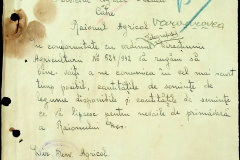 Către
Raionul Agricol
în conformitate cu ordinul Direcțiunii
Agriculturii No 529/942 vă rugăm să
bine-voiți a ne comunica în cel mai scurt
timp posibil, cantitățile de semințe de
legume disponibile și cantitățile de semințe
ce vă lipsesc pentru nevoile de primăvară
a Raionului Dvs.
Agricol